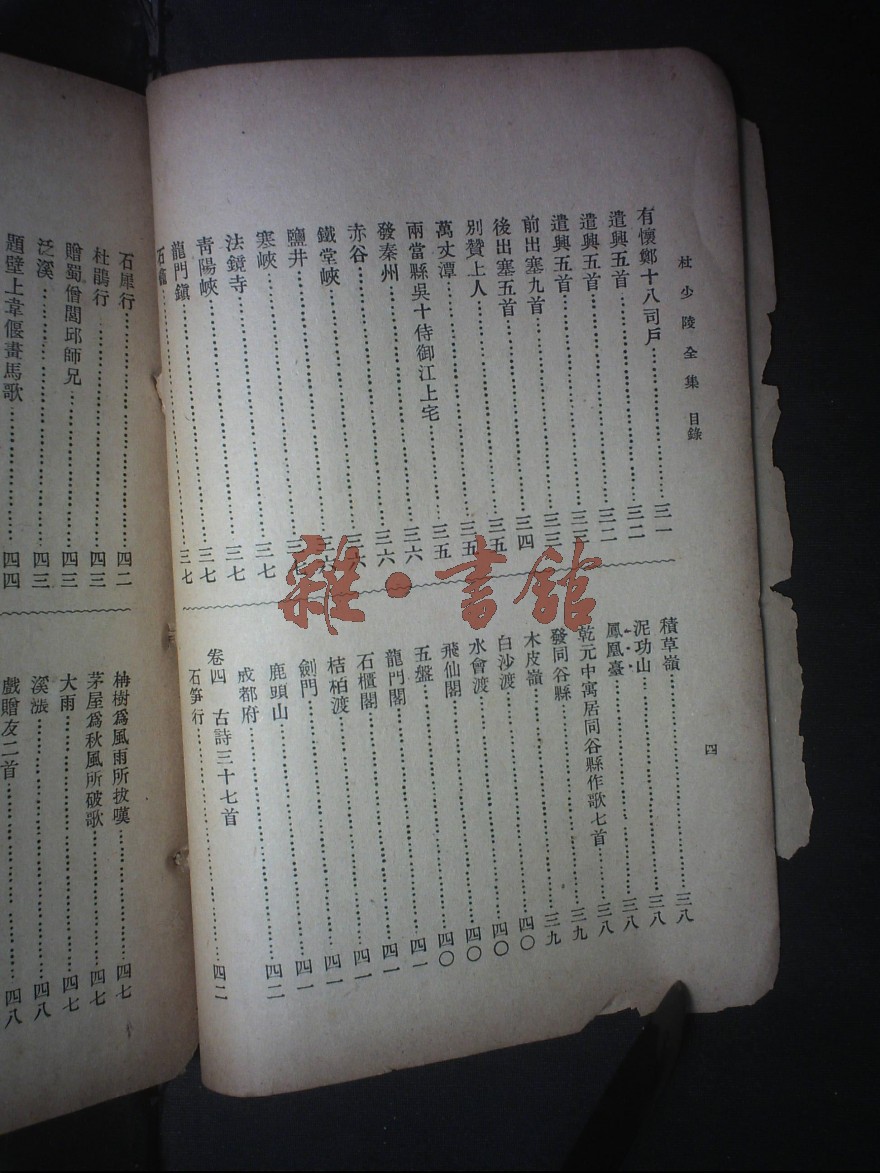 杜少陵全集 目錄
四
有懷鄭十八司戶……三一
遣興五首……三二
遣興五首……三二
遣興五首……三三
前出塞九首……三四
後出塞五首……三五
別贊上人……三五
萬丈潭……三五
兩當縣吳十侍御江上宅……三六
發秦州……三六
赤谷……三六
鐵堂峽……三六
鹽井……三七
寒峽……三七
法鏡寺……三七
青陽峽……三七
龍門鎮……三七
石龕
積草嶺……三八
泥功山……三八
鳳凰臺……三八
乾元中寓居同谷縣作歌七首……三八
發同谷縣……三九
木皮嶺……三九
白沙渡……四〇
水會渡……四〇
飛仙閣……四〇
五盤……四〇
龍門閣……四一
石櫃閣……四一
桔柏渡……四一
劍門……四一
鹿頭山……四一
成都府……四二
卷四 古詩三十七首
石笋行……四二
石犀行……四二
杜鵑行……四三
贈蜀僧閭邱師兄……四三
泛溪……四三
題壁上韋偃畫馬歌……四四
柟樹爲風雨所拔嘆……四七
茅屋爲秋風所破歌……四七
大雨……四七
溪漲……四八
戲贈友二首……四八
雜·書館